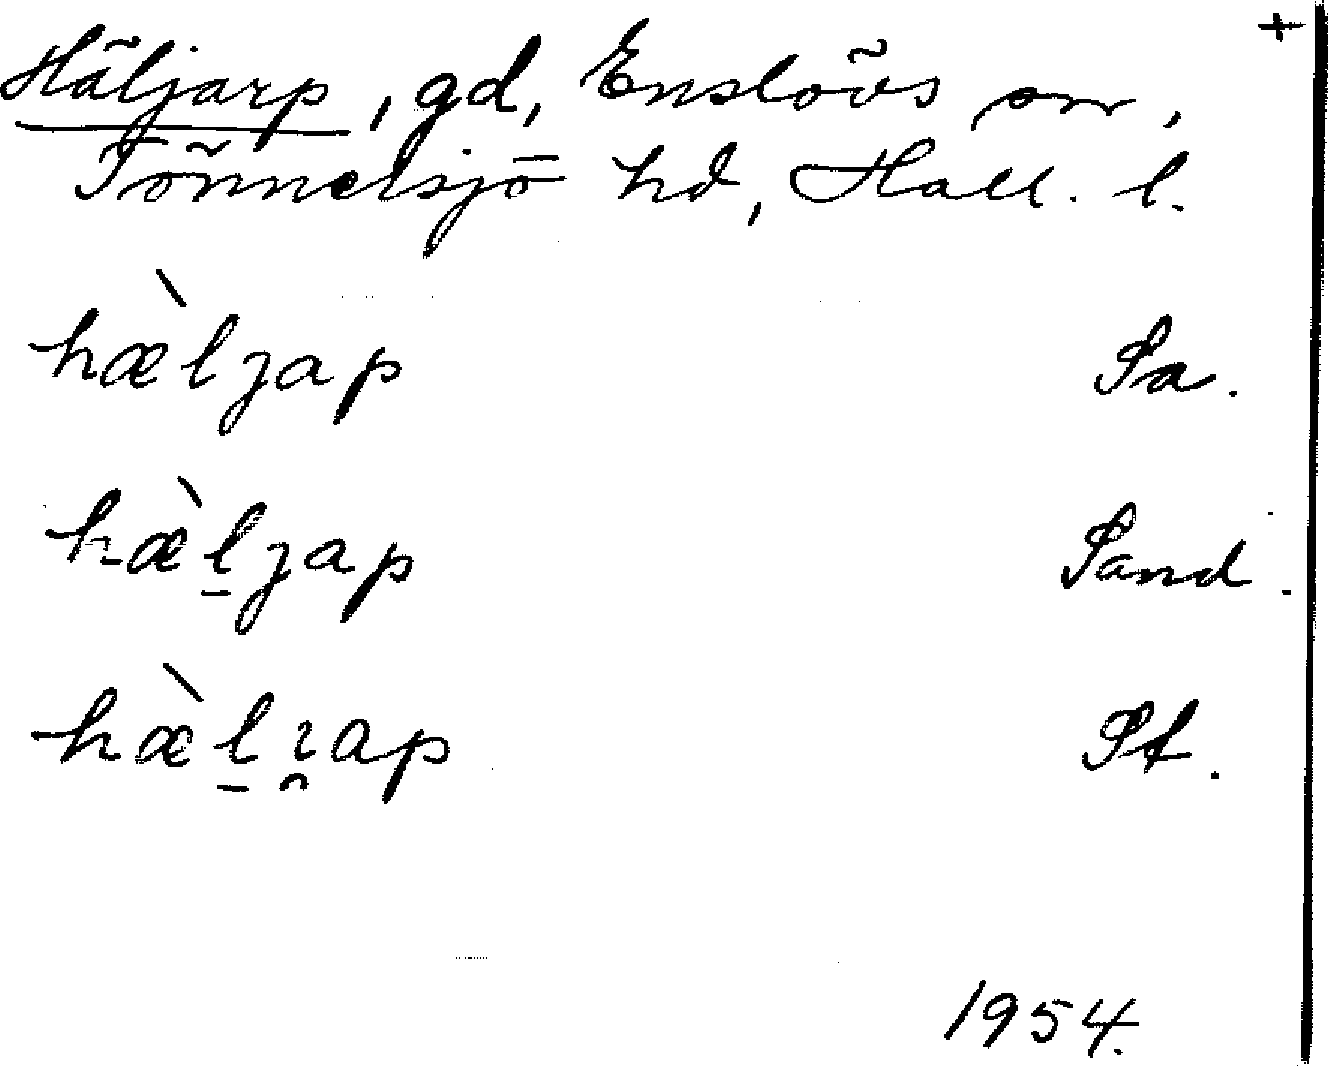 +
Häljarp, gd, Enslövs sn,
Tönnersjö hd, Hall. l.
hæ̀ljap Sa.
hæ̀l̠jap Sand.
hæ̀l̠ı̯ap St.
1954.